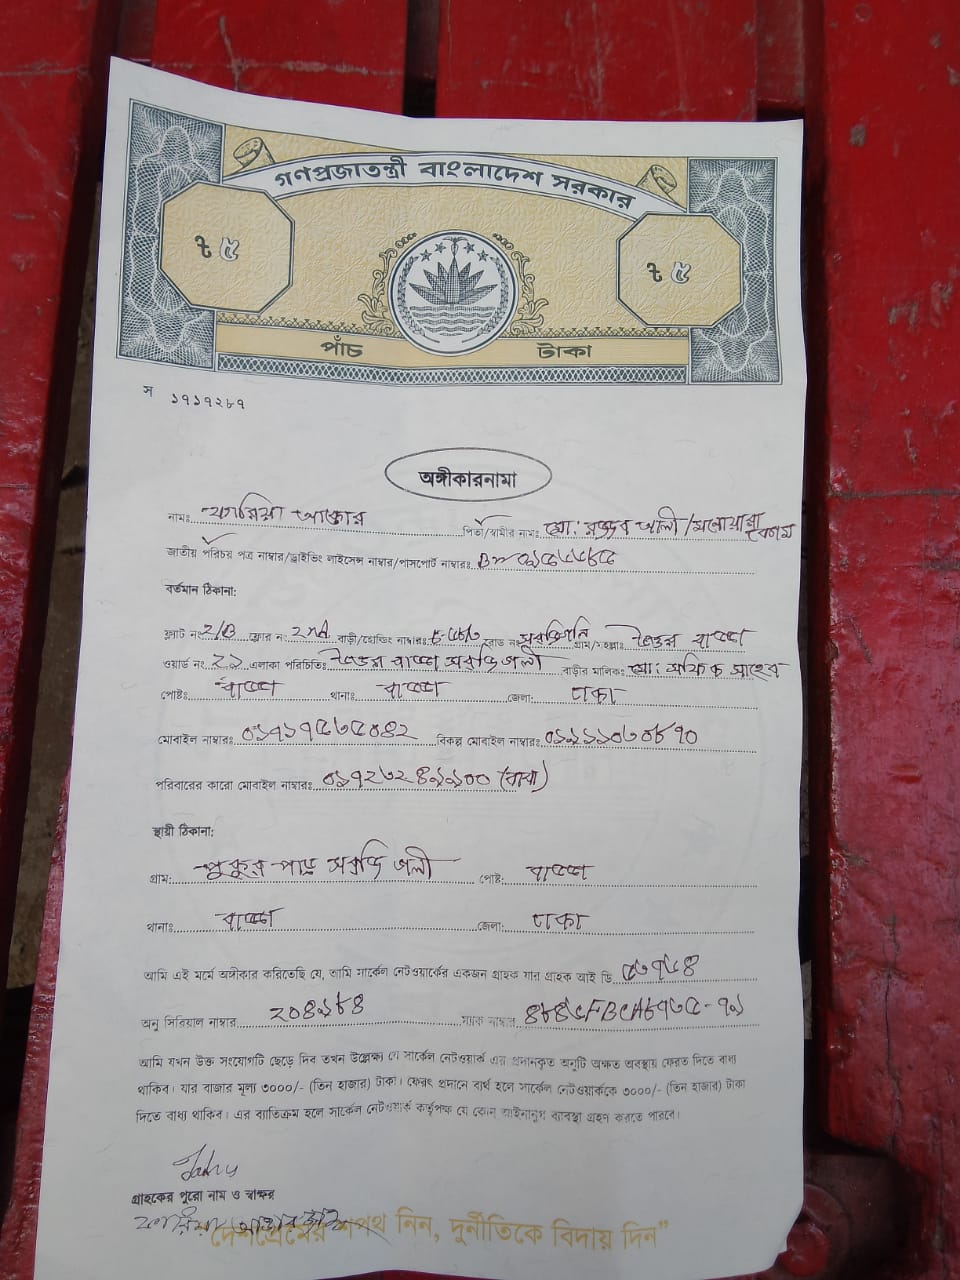 গণপ্রজাতন্ত্রী বাংলাদেশ সরকার
৳ ৫ ৳ ৫
পাঁচ টাকা
স ১৭১৭২৮৭
অঙ্গীকারনামা
নামঃ ফারিয়া আক্তার পিতা/স্বামীর নামঃ মো: রজ্জব আলী/মনোয়ারা বেগম
জাতীয় পরিচয় পত্র নাম্বার/ড্রাইভিং লাইসেন্স নাম্বার/পাসপোর্ট নাম্বারঃ
বর্তমান ঠিকানা:
ফ্লাট নং 2/B ফ্লোর নং 2nd বাড়ী/হোল্ডিং নাম্বারঃ রোড নং গ্রাম/মহল্লাঃ উত্তর বাড্ডা
ওয়ার্ড নং ২১ এলাকা পরিচিতিঃ উত্তর বাড্ডা বাড়ীর মালিকঃ মো: শফিক সাহেব
পোষ্টঃ বাড্ডা থানাঃ বাড্ডা জেলা: ঢাকা
মোবাইল নাম্বারঃ বিকল্প মোবাইল নাম্বারঃ
পরিবারের কারো মোবাইল নাম্বারঃ (বাবা)
স্থায়ী ঠিকানা:
গ্রাম: পুকুর পাড় পোষ্ট: বাড্ডা
থানাঃ বাড্ডা জেলা: ঢাকা
আমি এই মর্মে অঙ্গীকার করিতেছি যে, আমি সার্কেল নেটওয়ার্কের একজন গ্রাহক যার গ্রাহক আই ডি
অনু সিরিয়াল নাম্বার ২০৪১৮৪ ম্যাক নাম্বার
আমি যখন উক্ত সংযোগটি ছেড়ে দিব তখন উল্লেক্ষ্য যে সার্কেল নেটওয়ার্ক এর প্রদানকৃত অনুটি অক্ষত অবস্থায় ফেরত দিতে বাধ্য
থাকিব। যার বাজার মূল্য ৩০০০/- (তিন হাজার) টাকা। ফেরৎ প্রদানে ব্যর্থ হলে সার্কেল নেটওয়ার্ককে ৩০০০/- (তিন হাজার) টাকা
দিতে বাধ্য থাকিব। এর ব্যতিক্রম হলে সার্কেল নেটওয়ার্ক কর্তৃপক্ষ যে কোন আইনানুগ ব্যবস্থা গ্রহণ করতে পারবে।
গ্রাহকের পুরো নাম ও স্বাক্ষর
ফারিয়া আক্তার
"দেশপ্রেমের শপথ নিন, দুর্নীতিকে বিদায় দিন"